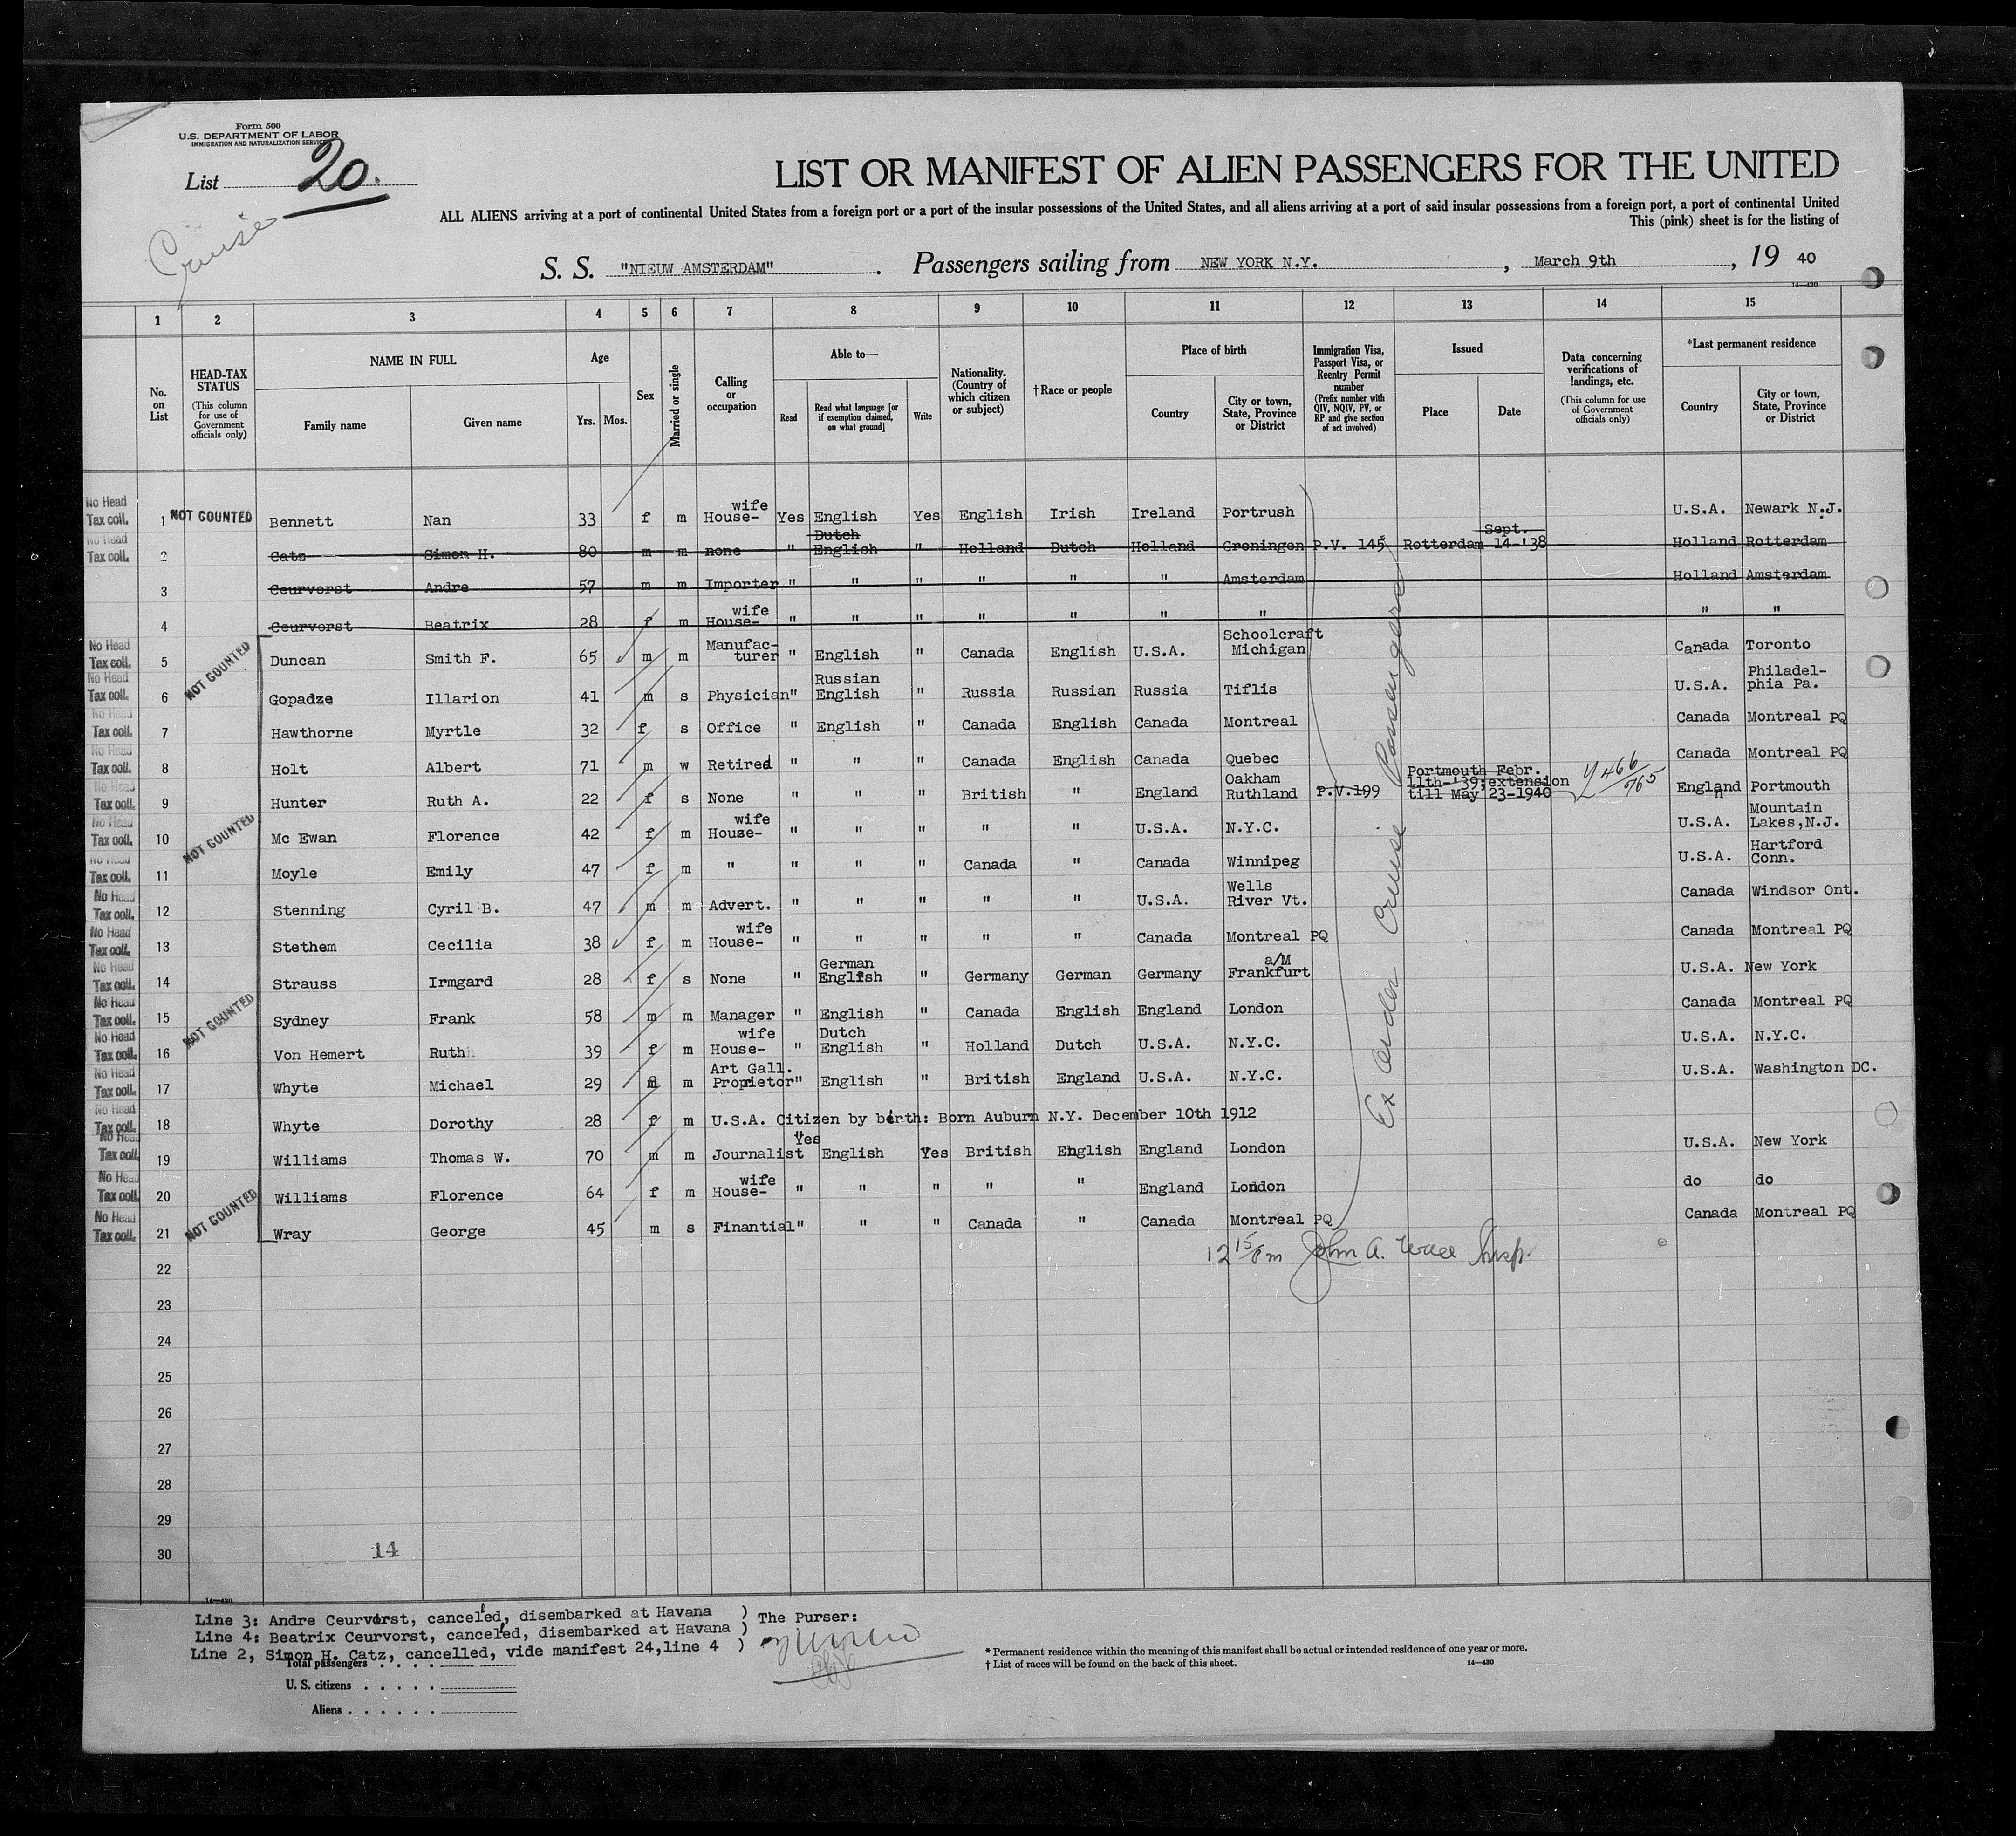 Form 500
U.S. DEPARTMENT OF LABOR
IMMIGRATION AND NATURALIZATION SERVICE
List 20.
Cruise
LIST OR MANIFEST OF ALIEN PASSENGERS FOR THE UNITED
ALL ALIENS arriving at a port of continental United States from a foreign port or a port of the insular possessions of the United States, and all aliens arriving at a port of said insular possessions from a foreign port, a port of continental United
This (pink) sheet is for the listing of
S. S. "NIEUW AMSTERDAM". Passengers sailing from NEW YORK N.Y., March 9th, 19 40
14—430
1 2 3 4 5 6 7 8 9 10 11 12 13 14 15
No. on List
HEAD-TAX STATUS (This column for use of Government officials only)
NAME IN FULL
Family name Given name
Age Yrs. Mos.
Sex
Married or single
Calling or occupation
Able to—
Read Read what language [or if exemption claimed, on what ground] Write
Nationality. (Country of which citizen or subject)
† Race or people
Place of birth
Country City or town, State, Province or District
Immigration Visa, Passport Visa, or Reentry Permit number (Prefix number with QIV, NQIV, PV, or RP and give section of act involved)
Issued
Place Date
Data concerning verifications of landings, etc. (This column for use of Government officials only)
*Last permanent residence
Country City or town, State, Province or District
No Head Tax coll. 1 NOT COUNTED Bennett Nan 33 f m House-wife Yes English Yes English Irish Ireland Portrush U.S.A. Newark N.J.
No Head Tax coll. 2 Catz Simon H. 80 m m none " Dutch English " Holland Dutch Holland Groningen P.V. 145 Rotterdam Sept. 14-'38 Holland Rotterdam
3 Ceurvorst Andre 57 m m Importer " " " " " " Amsterdam Holland Amsterdam
4 Ceurvorst Beatrix 28 f m House-wife " " " " " " " " "
No Head Tax coll. 5 NOT COUNTED Duncan Smith F. 65 m m Manufac-turer " English " Canada English U.S.A. Schoolcraft Michigan Canada Toronto
No Head Tax coll. 6 Gopadze Illarion 41 m s Physician " Russian English " Russia Russian Russia Tiflis U.S.A. Philadel-phia Pa.
No Head Tax coll. 7 Hawthorne Myrtle 32 f s Office " English " Canada English Canada Montreal Canada Montreal PQ
No Head Tax coll. 8 Holt Albert 71 m w Retired " " " Canada English Canada Quebec Canada Montreal PQ
No Head Tax coll. 9 Hunter Ruth A. 22 f s None " " " British " England Oakham Ruthland P.V.199 Portmouth Febr. 11th-'39;extension till May 23-1940 England Portmouth
No Head Tax coll. 10 NOT COUNTED Mc Ewan Florence 42 f m House-wife " " " " " U.S.A. N.Y.C. U.S.A. Mountain Lakes,N.J.
No Head Tax coll. 11 Moyle Emily 47 f m " " " " Canada " Canada Winnipeg U.S.A. Hartford Conn.
No Head Tax coll. 12 Stenning Cyril B. 47 m m Advert. " " " " " U.S.A. Wells River Vt. Canada Windsor Ont.
No Head Tax coll. 13 Stethem Cecilia 38 f m House-wife " " " " " Canada Montreal PQ Canada Montreal PQ
No Head Tax coll. 14 Strauss Irmgard 28 f s None " German English " Germany German Germany Frankfurt a/M U.S.A. New York
No Head Tax coll. 15 NOT COUNTED Sydney Frank 58 m m Manager " English " Canada English England London Canada Montreal PQ
No Head Tax coll. 16 Von Hemert Ruth 39 f m House-wife " Dutch English " Holland Dutch U.S.A. N.Y.C. U.S.A. N.Y.C.
No Head Tax coll. 17 Whyte Michael 29 m m Art Gall. Proprietor " English " British England U.S.A. N.Y.C. U.S.A. Washington DC.
No Head Tax coll. 18 Whyte Dorothy 28 f m U.S.A. Citizen by birth: Born Auburn N.Y. December 10th 1912
No Head Tax coll. 19 Williams Thomas W. 70 m m Journalist Yes English Yes British English England London U.S.A. New York
No Head Tax coll. 20 Williams Florence 64 f m House-wife " " " " " England London do do
No Head Tax coll. 21 NOT COUNTED Wray George 45 m s Finantial " " " Canada " Canada Montreal PQ Canada Montreal PQ
Ex Order Cruise Passengers
12 15/pm John A. Insp.
22
23
24
25
26
27
28
29
30
14
14—430
Line 3: Andre Ceurvorst, canceled, disembarked at Havana ) The Purser:
Line 4: Beatrix Ceurvorst, canceled, disembarked at Havana )
Line 2, Simon H. Catz, cancelled, vide manifest 24,line 4 )
Total passengers
U. S. citizens
Aliens
* Permanent residence within the meaning of this manifest shall be actual or intended residence of one year or more.
† List of races will be found on the back of this sheet.
14—430